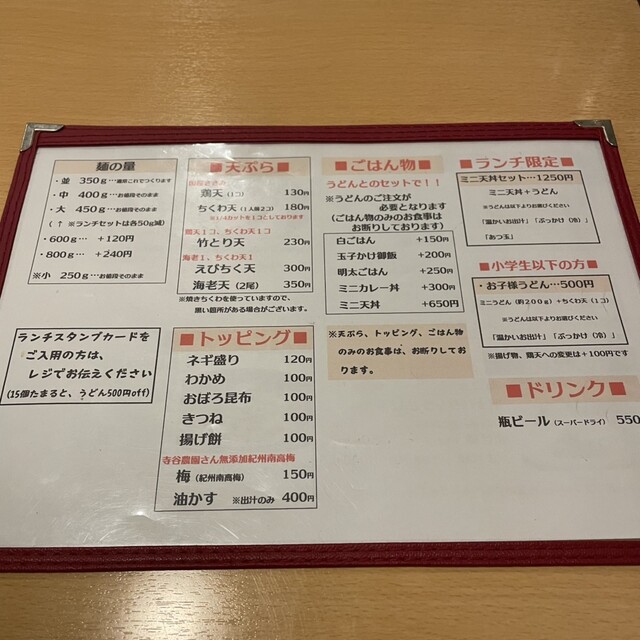 麺の量
・並 350g…通常これでつくります
・中 400g…お値段そのまま
・大 450g…お値段そのまま
（↑ ※ランチセットは各50g減）
・600g… +120円
・800g… +240円
※小 250g…お値段そのまま
ランチスタンプカードを
ご入用の方は、
レジでお伝えください
(15個たまると、うどん500円off)
■天ぷら■
鶏天（1コ） 130円
ちくわ天（1人前2コ） 180円
※1/4カットを1コとしております
鶏天1コ、ちくわ天1コ
竹とり天 230円
海老1、ちくわ天1
えびちく天 300円
海老天（2尾） 350円
※焼きちくわを使っていますので、
黒い箇所がある場合がございます。
■トッピング■
ネギ盛り 120円
わかめ 100円
おぼろ昆布 100円
きつね 100円
揚げ餅 100円
寺谷農園さん無添加紀州南高梅
梅（紀州南高梅） 150円
油かす ※出汁のみ 400円
■ごはん物■
うどんとのセットで！！
※うどんのご注文が
必要となります
（ごはん物のみのお食事は
お断りしております）
白ごはん +150円
玉子かけ御飯 +200円
明太ごはん +250円
ミニカレー丼 +300円
ミニ天丼 +650円
※天ぷら、トッピング、ごはん物
のみのお食事は、お断りしてお
ります。
■ランチ限定■
ミニ天丼セット…1250円
ミニ天丼＋うどん
※うどんは以下よりお選びください
「温かいお出汁」「ぶっかけ（冷）」
「あつ玉」
■小学生以下の方■
・お子様うどん…500円
ミニうどん（約200g）＋ちくわ天（1コ）
※うどんは以下よりお選びください
「温かいお出汁」「ぶっかけ（冷）」
※揚げ物、鶏天への変更は＋100円です
■ドリンク■
瓶ビール（スーパードライ） 550